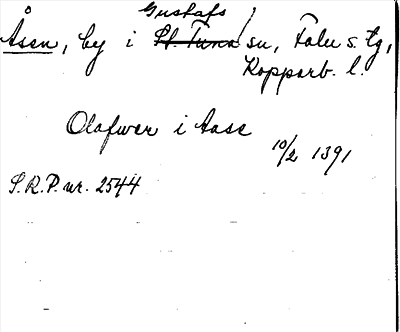 Gustafs
Åsen, by i St. Tuna sn, Falu s. tg,
Kopparb. l.
Olafwer i Aase
10/2 1391
S.R.P. nr. 2544